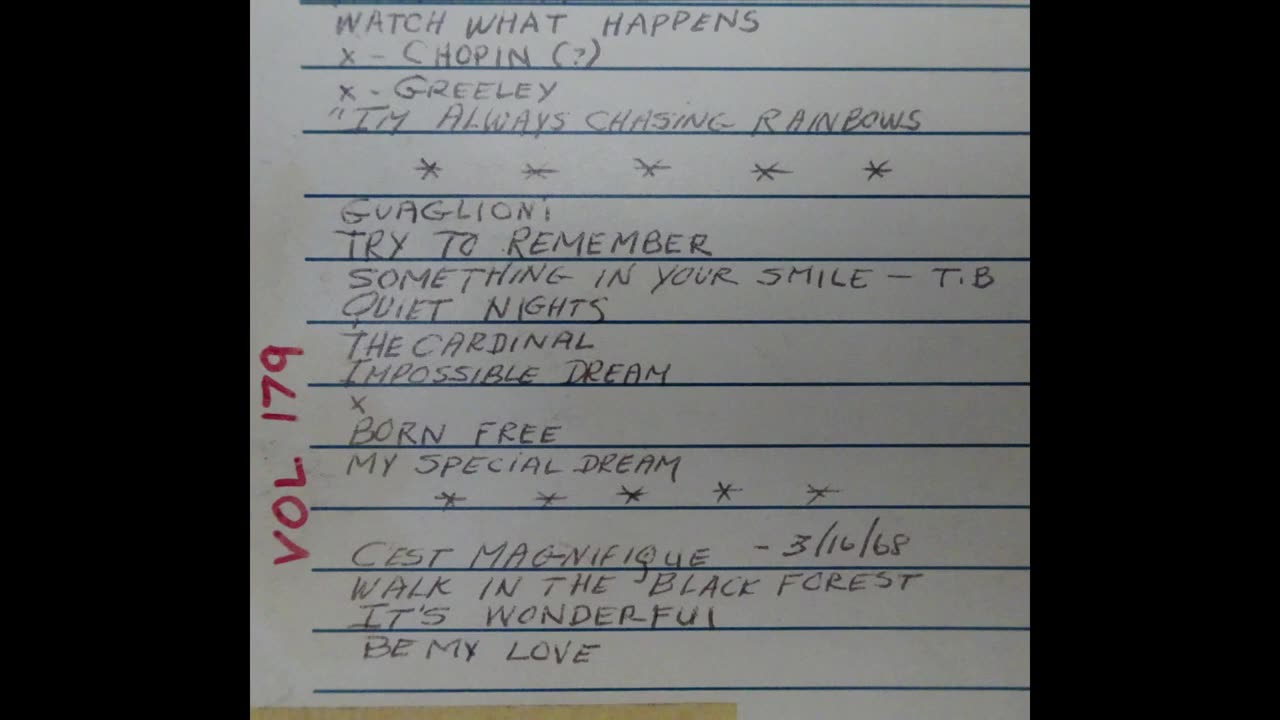 WATCH WHAT HAPPENS
x - CHOPIN (?)
x - GREELEY
"I'M ALWAYS CHASING RAINBOWS
* * * * *
GUAGLIONi
TRY TO REMEMBER
SOMETHING IN YOUR SMILE - T.B
QUIET NIGHTS
THE CARDINAL
IMPOSSIBLE DREAM
x
BORN FREE
MY SPECiAL DREAM
* * * * *
CEST MAGNIFIQUE - 3/16/68
WALK IN THE BLACK FOREST
IT'S WONDERFUl
BE MY LOVE
VOL 179